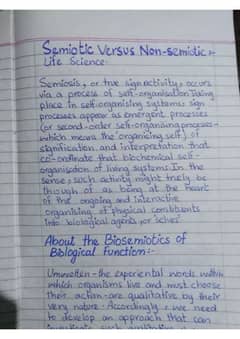 Semiotic Versus Non-semiotic :-
Life Science:
Semiosis, or true sign activity, occurs
via a process of self-organisation Taking
place in self-organising systems: sign
processes appear as emergent processes
(or second-order self-organising processes -
which means the organising self) of
signification and interpretation that
co-ordinate that biochemical self-
organisation of living systems. In the
sense, such activity might truely be
through of as being at the heart
of the ongoing and interactive
organising of physical constituents
into biological agents or 'selves'
About the Biosemiotics of
Biological function:-
Umwelten - the experiential words within
which organisms live and must choose
their action - are qualitative by their
very nature. Accordingly, we need
to develop an approach that can
such qualitative